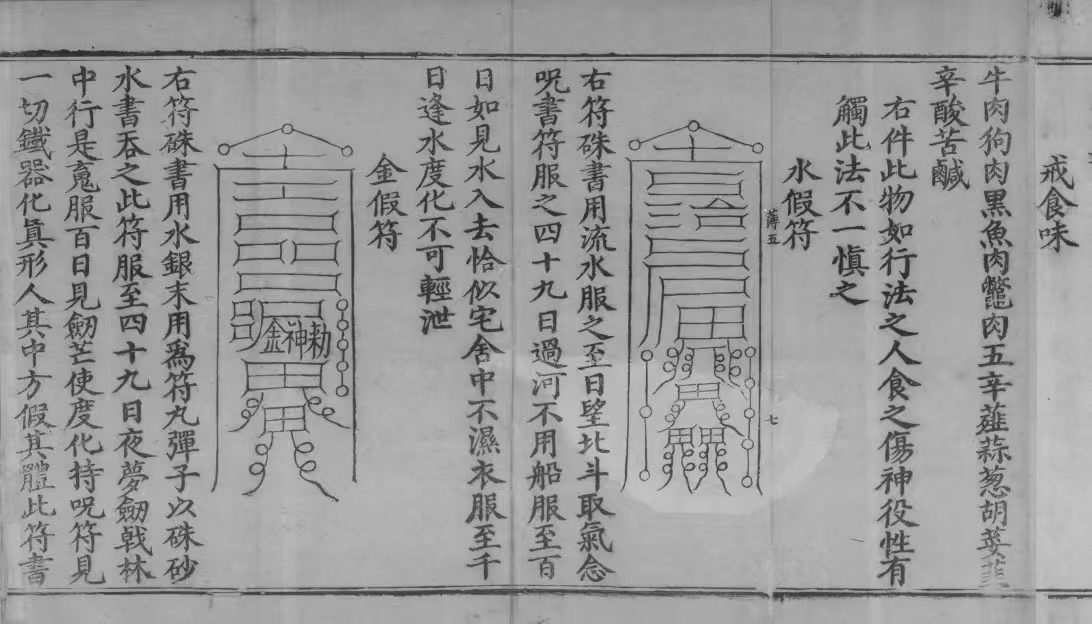 戒食味
牛肉狗肉黑魚肉鼈肉五辛薤蒜葱胡荽韮
辛酸苦鹹
右件此物如行法之人食之傷神役性有
觸此法不一慎之
水假符
薄五
七
右符硃書用流水服之至日望北斗取氣念
呪書符服之四十九日過河不用船服至百
日如見水入去恰似宅舍中不濕衣服至千
日逢水度化不可輕泄
金假符
勑神金
右符硃書用水銀末用爲符丸彈子以硃砂
水書吞之此符服至四十九日夜夢劒戟林
中行是䰟服百日見劒芒使度化持呪符見
一切鐵器化眞形人其中方假其體此符書